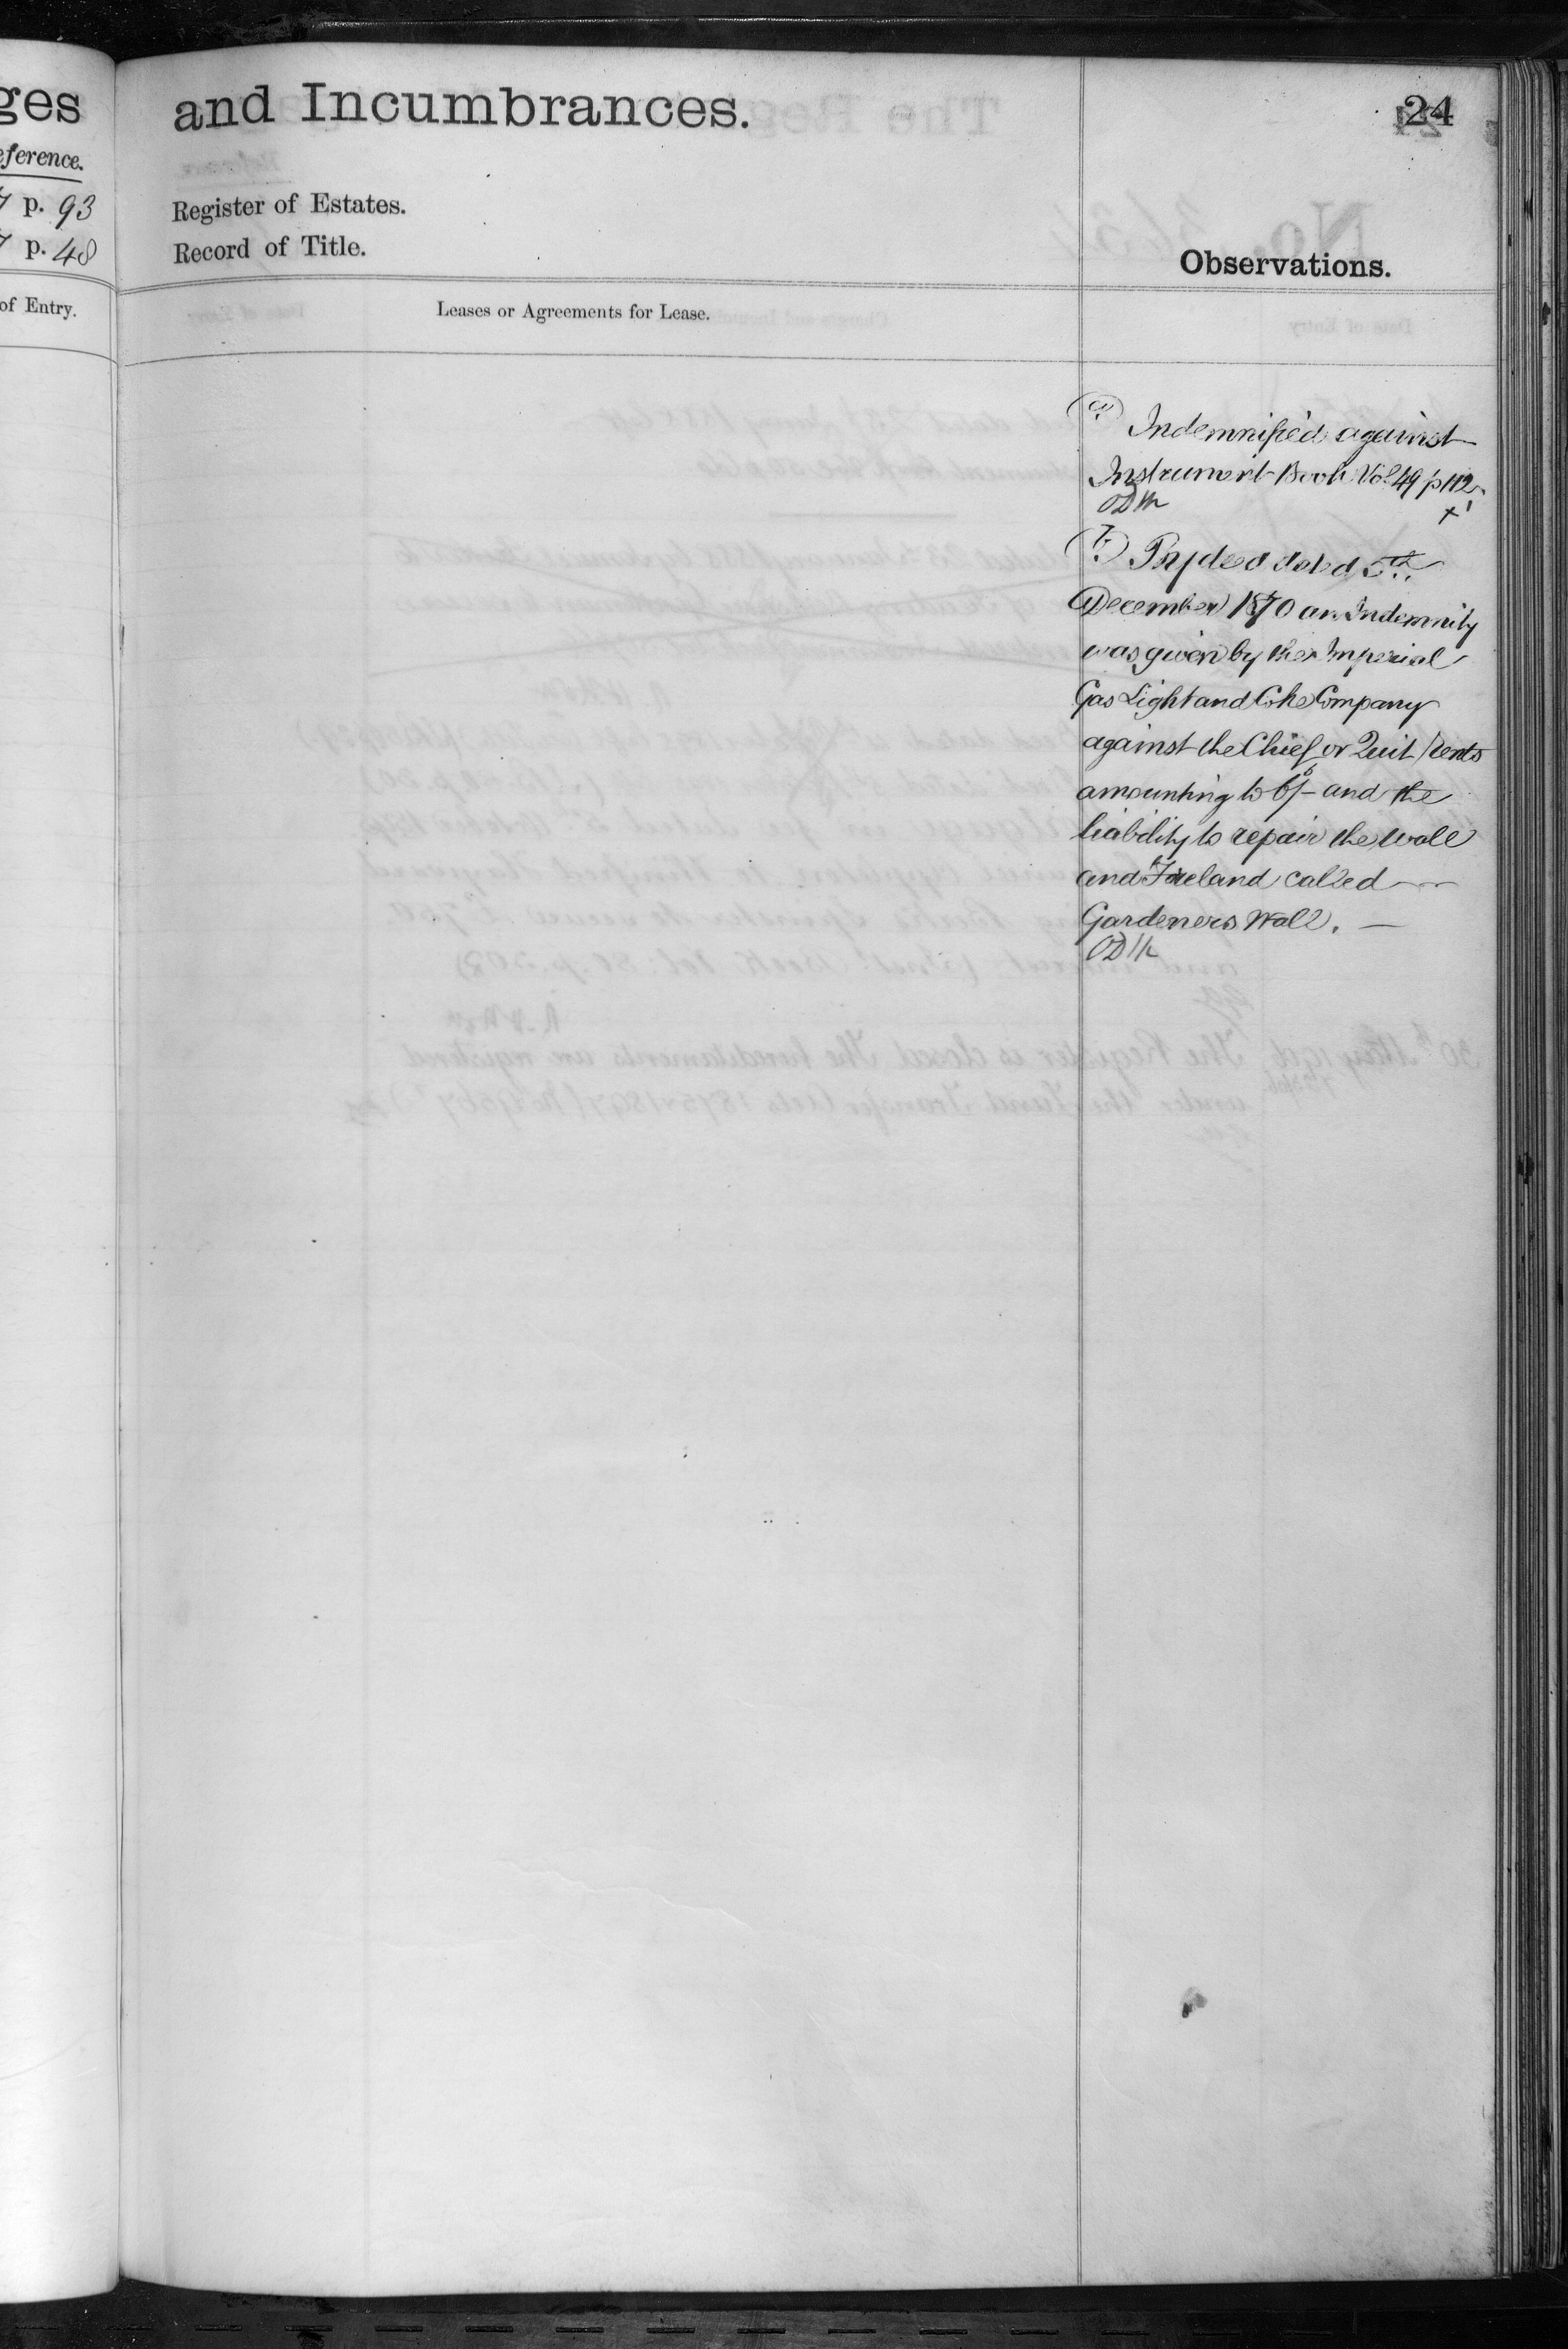 ges
and Incumbrances.
24
eference.
p. 93
Register of Estates.
p. 48
Record of Title.
Observations.
of Entry.
Leases or Agreements for Lease.
(a) Indemnified against
Instrument Book Vol 49 p 112
(b) By deed dated 5th
December 1870 an Indemnity
was given by the Imperial
Gas Light and Coke Company
against the Chief or Quit Rents
amounting to 6/- and the
liability to repair the wall
and Foreland called
Gardeners Wall.